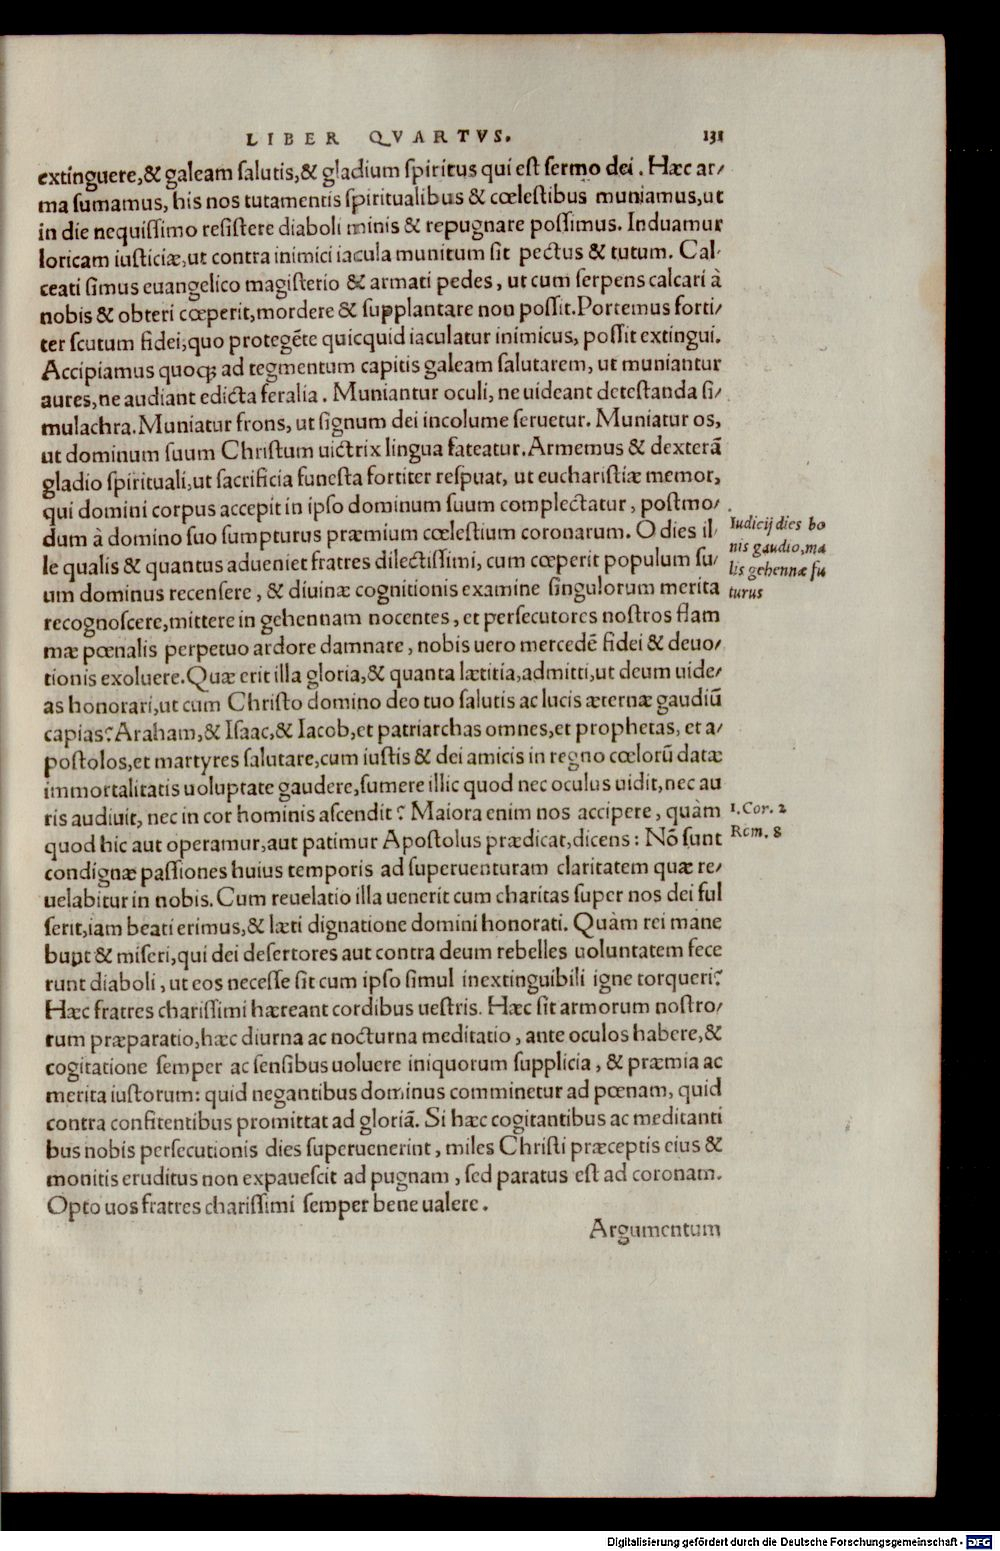 LIBER QVARTVS. 131
extinguere,& galeam salutis,& gladium spiritus qui est sermo dei. Hæc ar/
ma sumamus, his nos tutamentis spiritualibus & cœlestibus muniamus,ut
in die nequissimo resistere diaboli minis & repugnare possimus. Induamur
loricam iusticiæ,ut contra inimici iacula munitum sit pectus & tutum. Cal/
ceati simus euangelico magisterio & armati pedes, ut cum serpens calcari à
nobis & obteri cœperit,mordere & supplantare non possit.Portemus forti/
ter scutum fidei,quo protegẽte quicquid iaculatur inimicus, possit extingui.
Accipiamus quoq; ad tegmentum capitis galeam salutarem, ut muniantur
aures,ne audiant edicta feralia. Muniantur oculi, ne uideant detestanda si/
mulachra.Muniatur frons, ut signum dei incolume seruetur. Muniatur os,
ut dominum suum Christum uictrix lingua fateatur.Armemus & dexterã
gladio spirituali,ut sacrificia funesta fortiter respuat, ut eucharistiæ memor,
qui domini corpus accepit in ipso dominum suum complectatur, postmo/
dum à domino suo sumpturus præmium cœlestium coronarum. O dies il/
le qualis & quantus adueniet fratres dilectissimi, cum cœperit populum su/
um dominus recensere, & diuinæ cognitionis examine singulorum merita
recognoscere,mittere in gehennam nocentes, et persecutores nostros flam
mæ pœnalis perpetuo ardore damnare, nobis uero mercedẽ fidei & deuo/
tionis exoluere.Quæ erit illa gloria,& quanta lætitia,admitti,ut deum uide/
as honorari,ut cum Christo domino deo tuo salutis ac lucis æternæ gaudiũ
capias?Araham,& Isaac,& Iacob,et patriarchas omnes,et prophetas, et a/
postolos,et martyres salutare,cum iustis & dei amicis in regno cœlorũ datæ
immortalitatis uoluptate gaudere,sumere illic quod nec oculus uidit,nec au
ris audiuit, nec in cor hominis ascendit? Maiora enim nos accipere, quàm
quod hic aut operamur,aut patimur Apostolus prædicat,dicens: Nõ sunt
condignæ passiones huius temporis ad superuenturam claritatem quæ re/
uelabitur in nobis. Cum reuelatio illa uenerit cum charitas super nos dei ful
serit,iam beati erimus,& læti dignatione domini honorati. Quàm rei mane
bunt & miseri,qui dei desertores aut contra deum rebelles uoluntatem fece
runt diaboli, ut eos necesse sit cum ipso simul inextinguibili igne torqueri?
Hæc fratres charissimi hæreant cordibus uestris. Hæc sit armorum nostro/
rum præparatio,hæc diurna ac nocturna meditatio, ante oculos habere,&
cogitatione semper ac sensibus uoluere iniquorum supplicia, & præmia ac
merita iustorum: quid negantibus dominus comminetur ad pœnam, quid
contra confitentibus promittat ad gloriã. Si hæc cogitantibus ac meditanti
bus nobis persecutionis dies superuenerint, miles Christi præceptis eius &
monitis eruditus non expauescit ad pugnam, sed paratus est ad coronam.
Opto uos fratres charissimi semper bene ualere.
Argumentum
Iudicij dies bo
nis gaudio,ma
lis gehennæ fu
turus
1.Cor. 2
Rom. 8
Digitalisierung gefördert durch die Deutsche Forschungsgemeinschaft - DFG